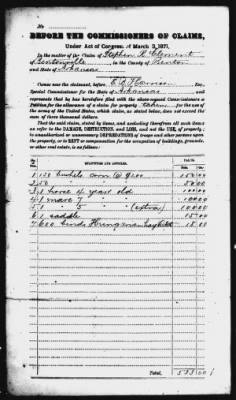 BEFORE THE COMMISSIONERS OF CLAIMS,
Under Act of Congress of March 3, 1871.
In the matter of the Claim of Stephen R. Clement
of Bentonville in the County of Benton
and State of Arkansas
Came now the claimant, before E. D. Harrison Esq.,
Special Commissioner for the State of Arkansas and
represents that he has heretofore filed with the above-named Commissioners a
Petition for the allowance of a claim for property taken for the use of
the army of the United States, which claim, as stated, does not exceed the
sum of three thousand dollars.
That the said claim, stated by items, and excluding therefrom all such items
as refer to the DAMAGE, DESTRUCTION, and LOSS, and not the USE, of property;
to unauthorized or unnecessary DEPREDATIONS by troops and other persons upon
property, or to RENT or compensation for the occupation of buildings, grounds,
or other real estate, is as follows:
QUANTITIES AND ARTICLES.
1 150 bushels corn
2 50 50 00
3 1 horse 4 year old
4 1 mare 7 100 00
5 1 " 5 " (extra) 100 00
6 1 saddle 15 00
7 600 binds 18 00
Total,